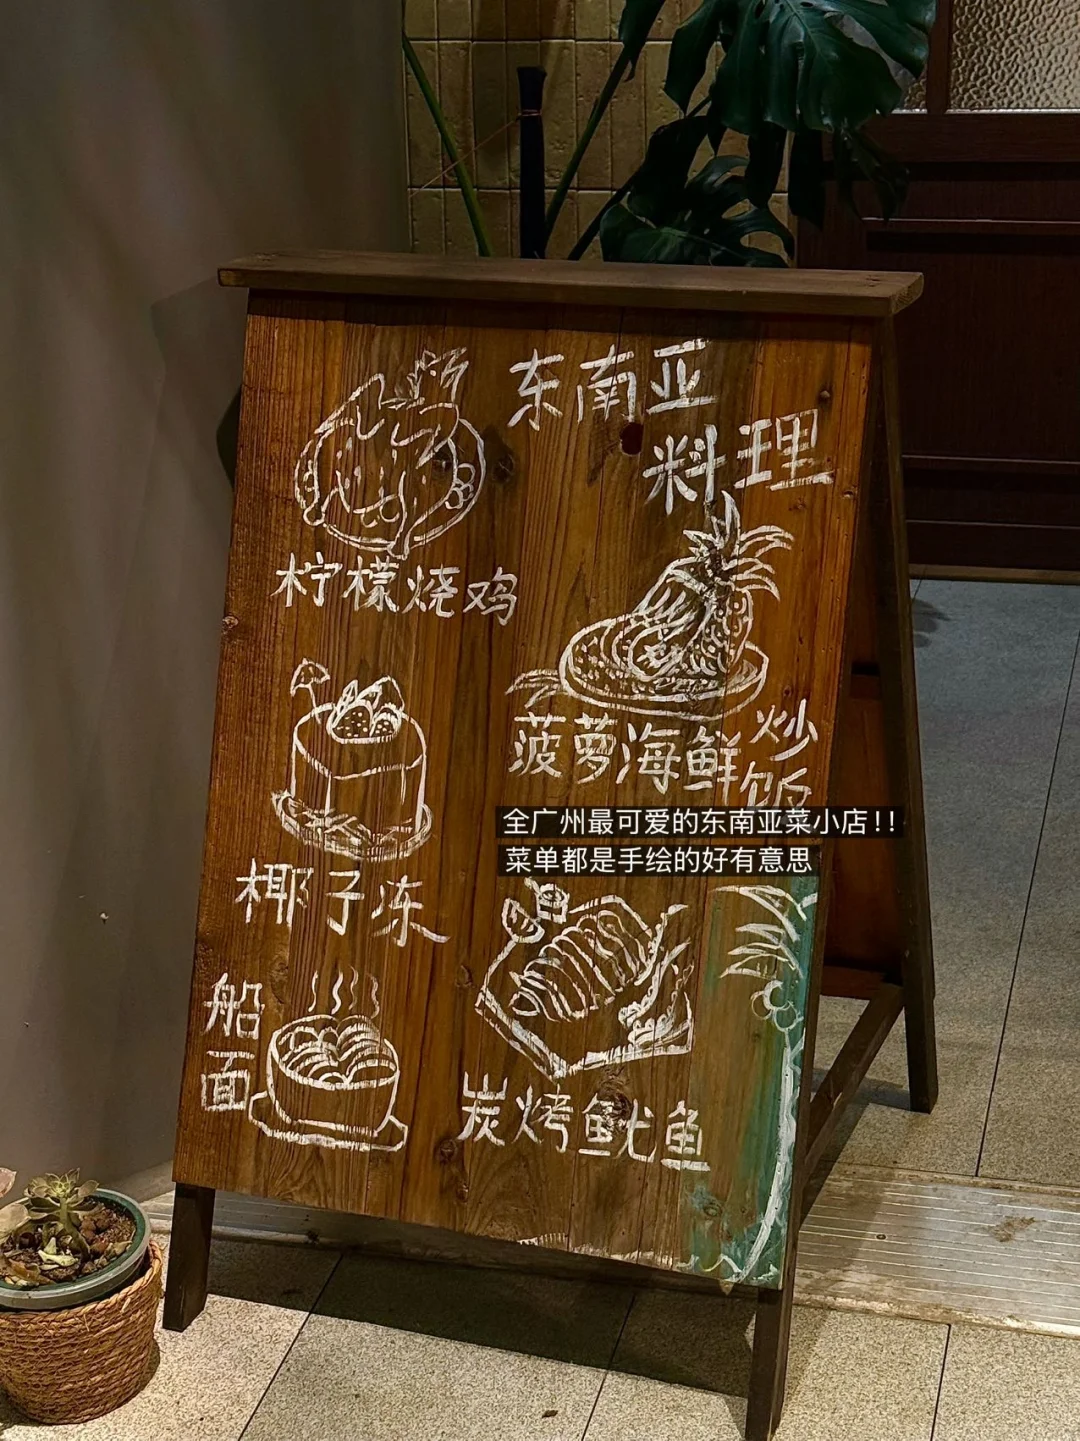 东南亚
料理
柠檬烧鸡
菠萝海鲜炒
饭
全广州最可爱的东南亚菜小店!!
菜单都是手绘的好有意思
椰子冻
船
面
炭烤鱿鱼